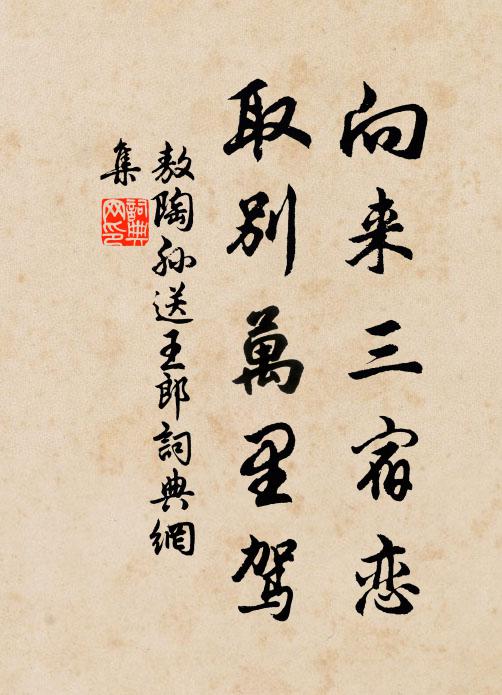 向来三宿恋
取别萬里驾
敖陶孙送王郎詞典網
集
詞典
网印